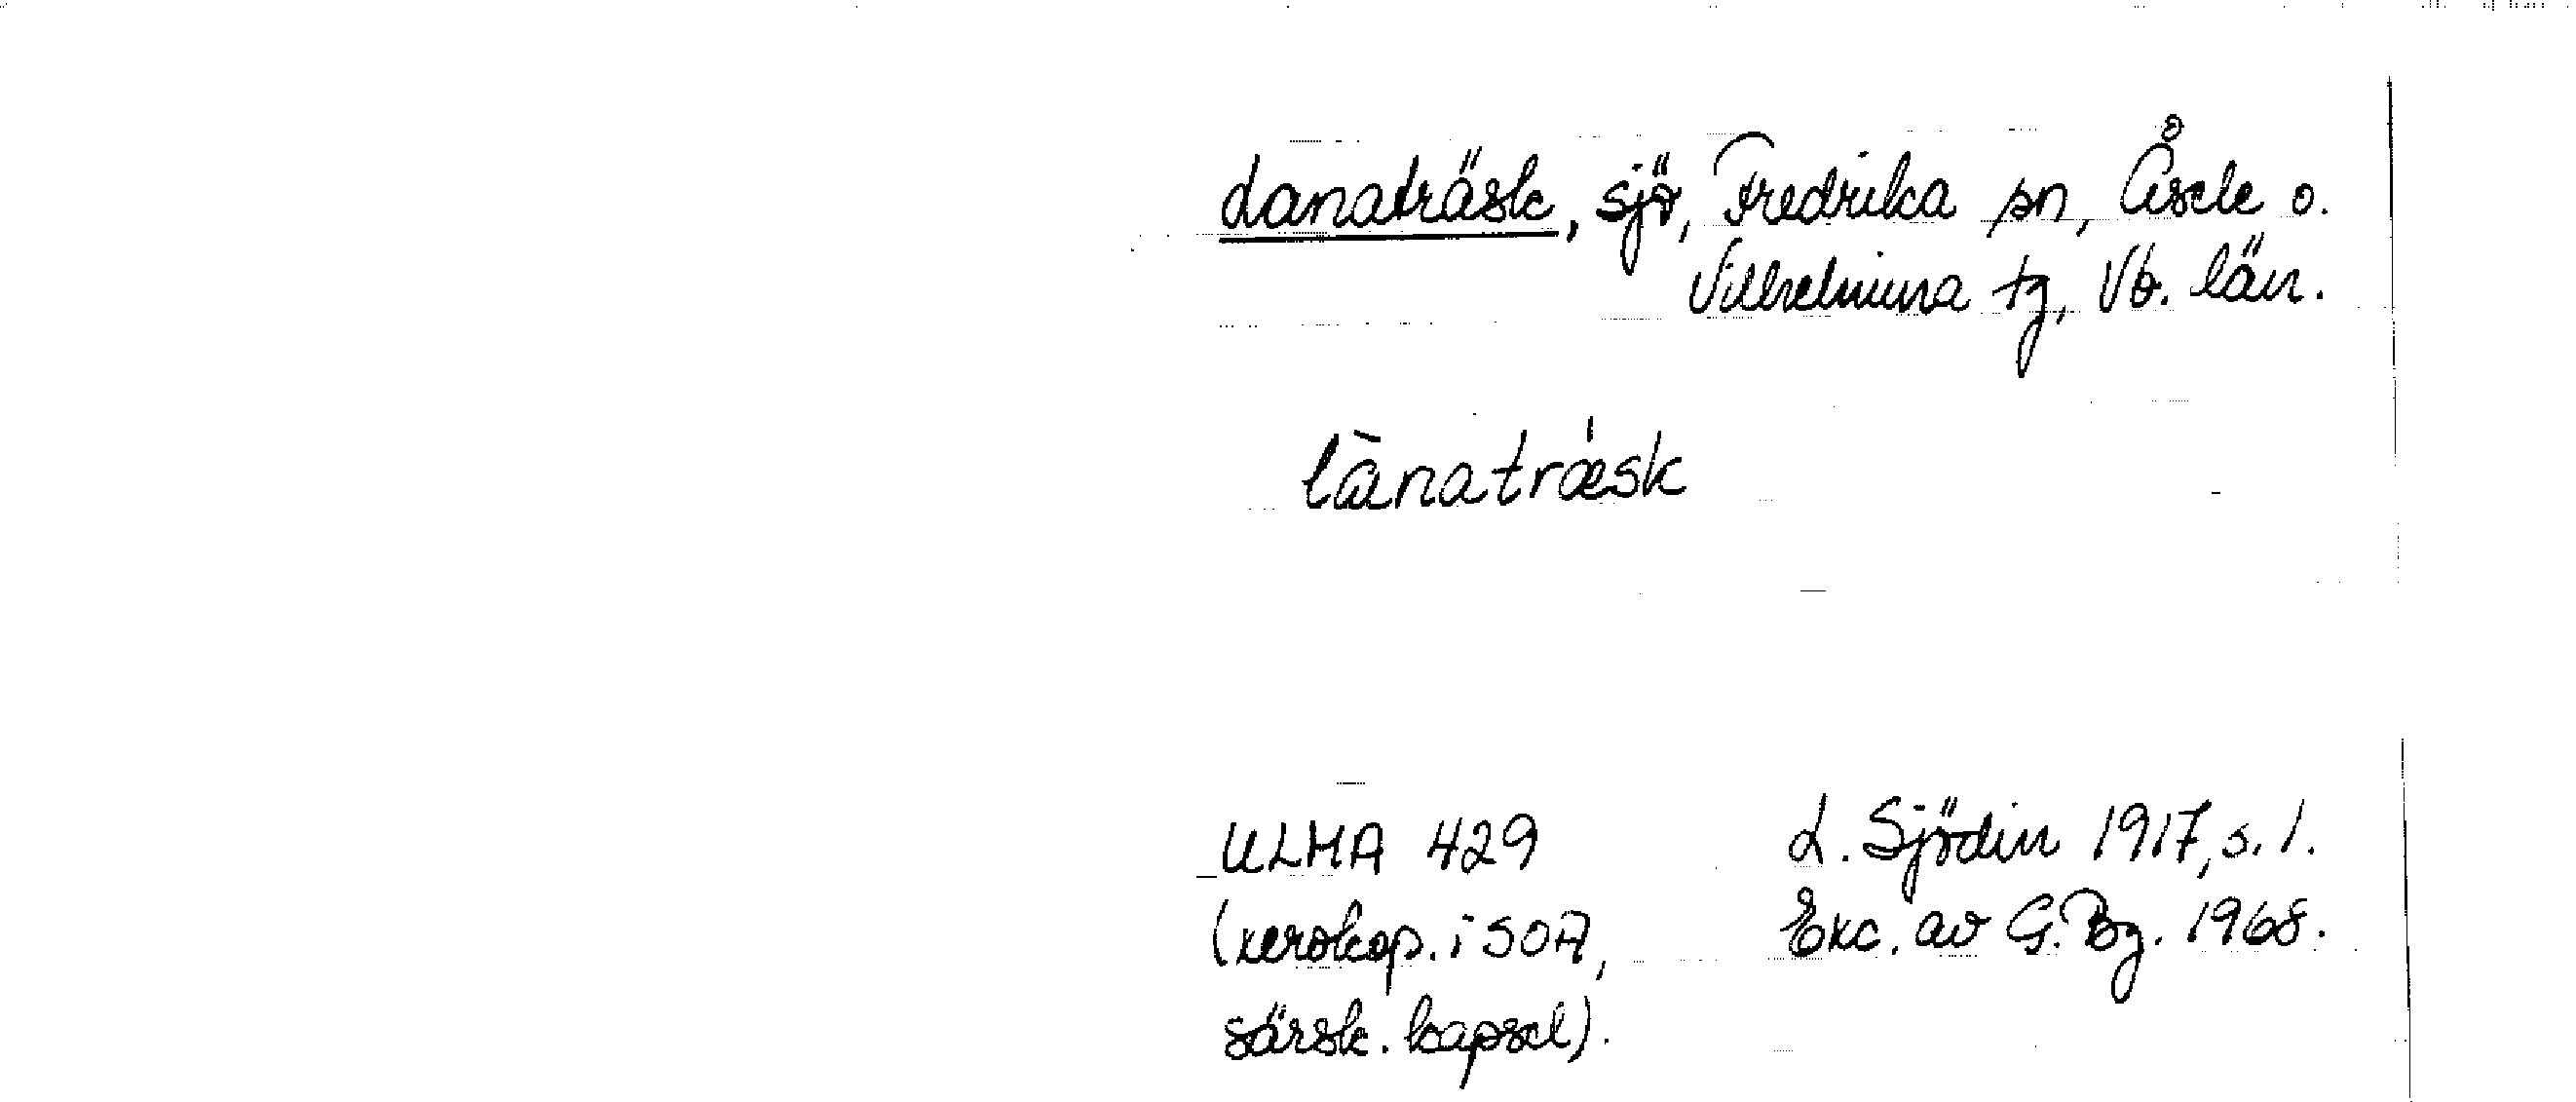 Lanaträsk, sjö, Fredrika sn, Åsele o.
Vilhelmina tg, Vb. län.
lànatræ'sk
ULMA 429
(xerokop. i SOA,
särsk. kapsel).
L. Sjödin 1917, s. 1.
Exc. av G. Bg. 1968.